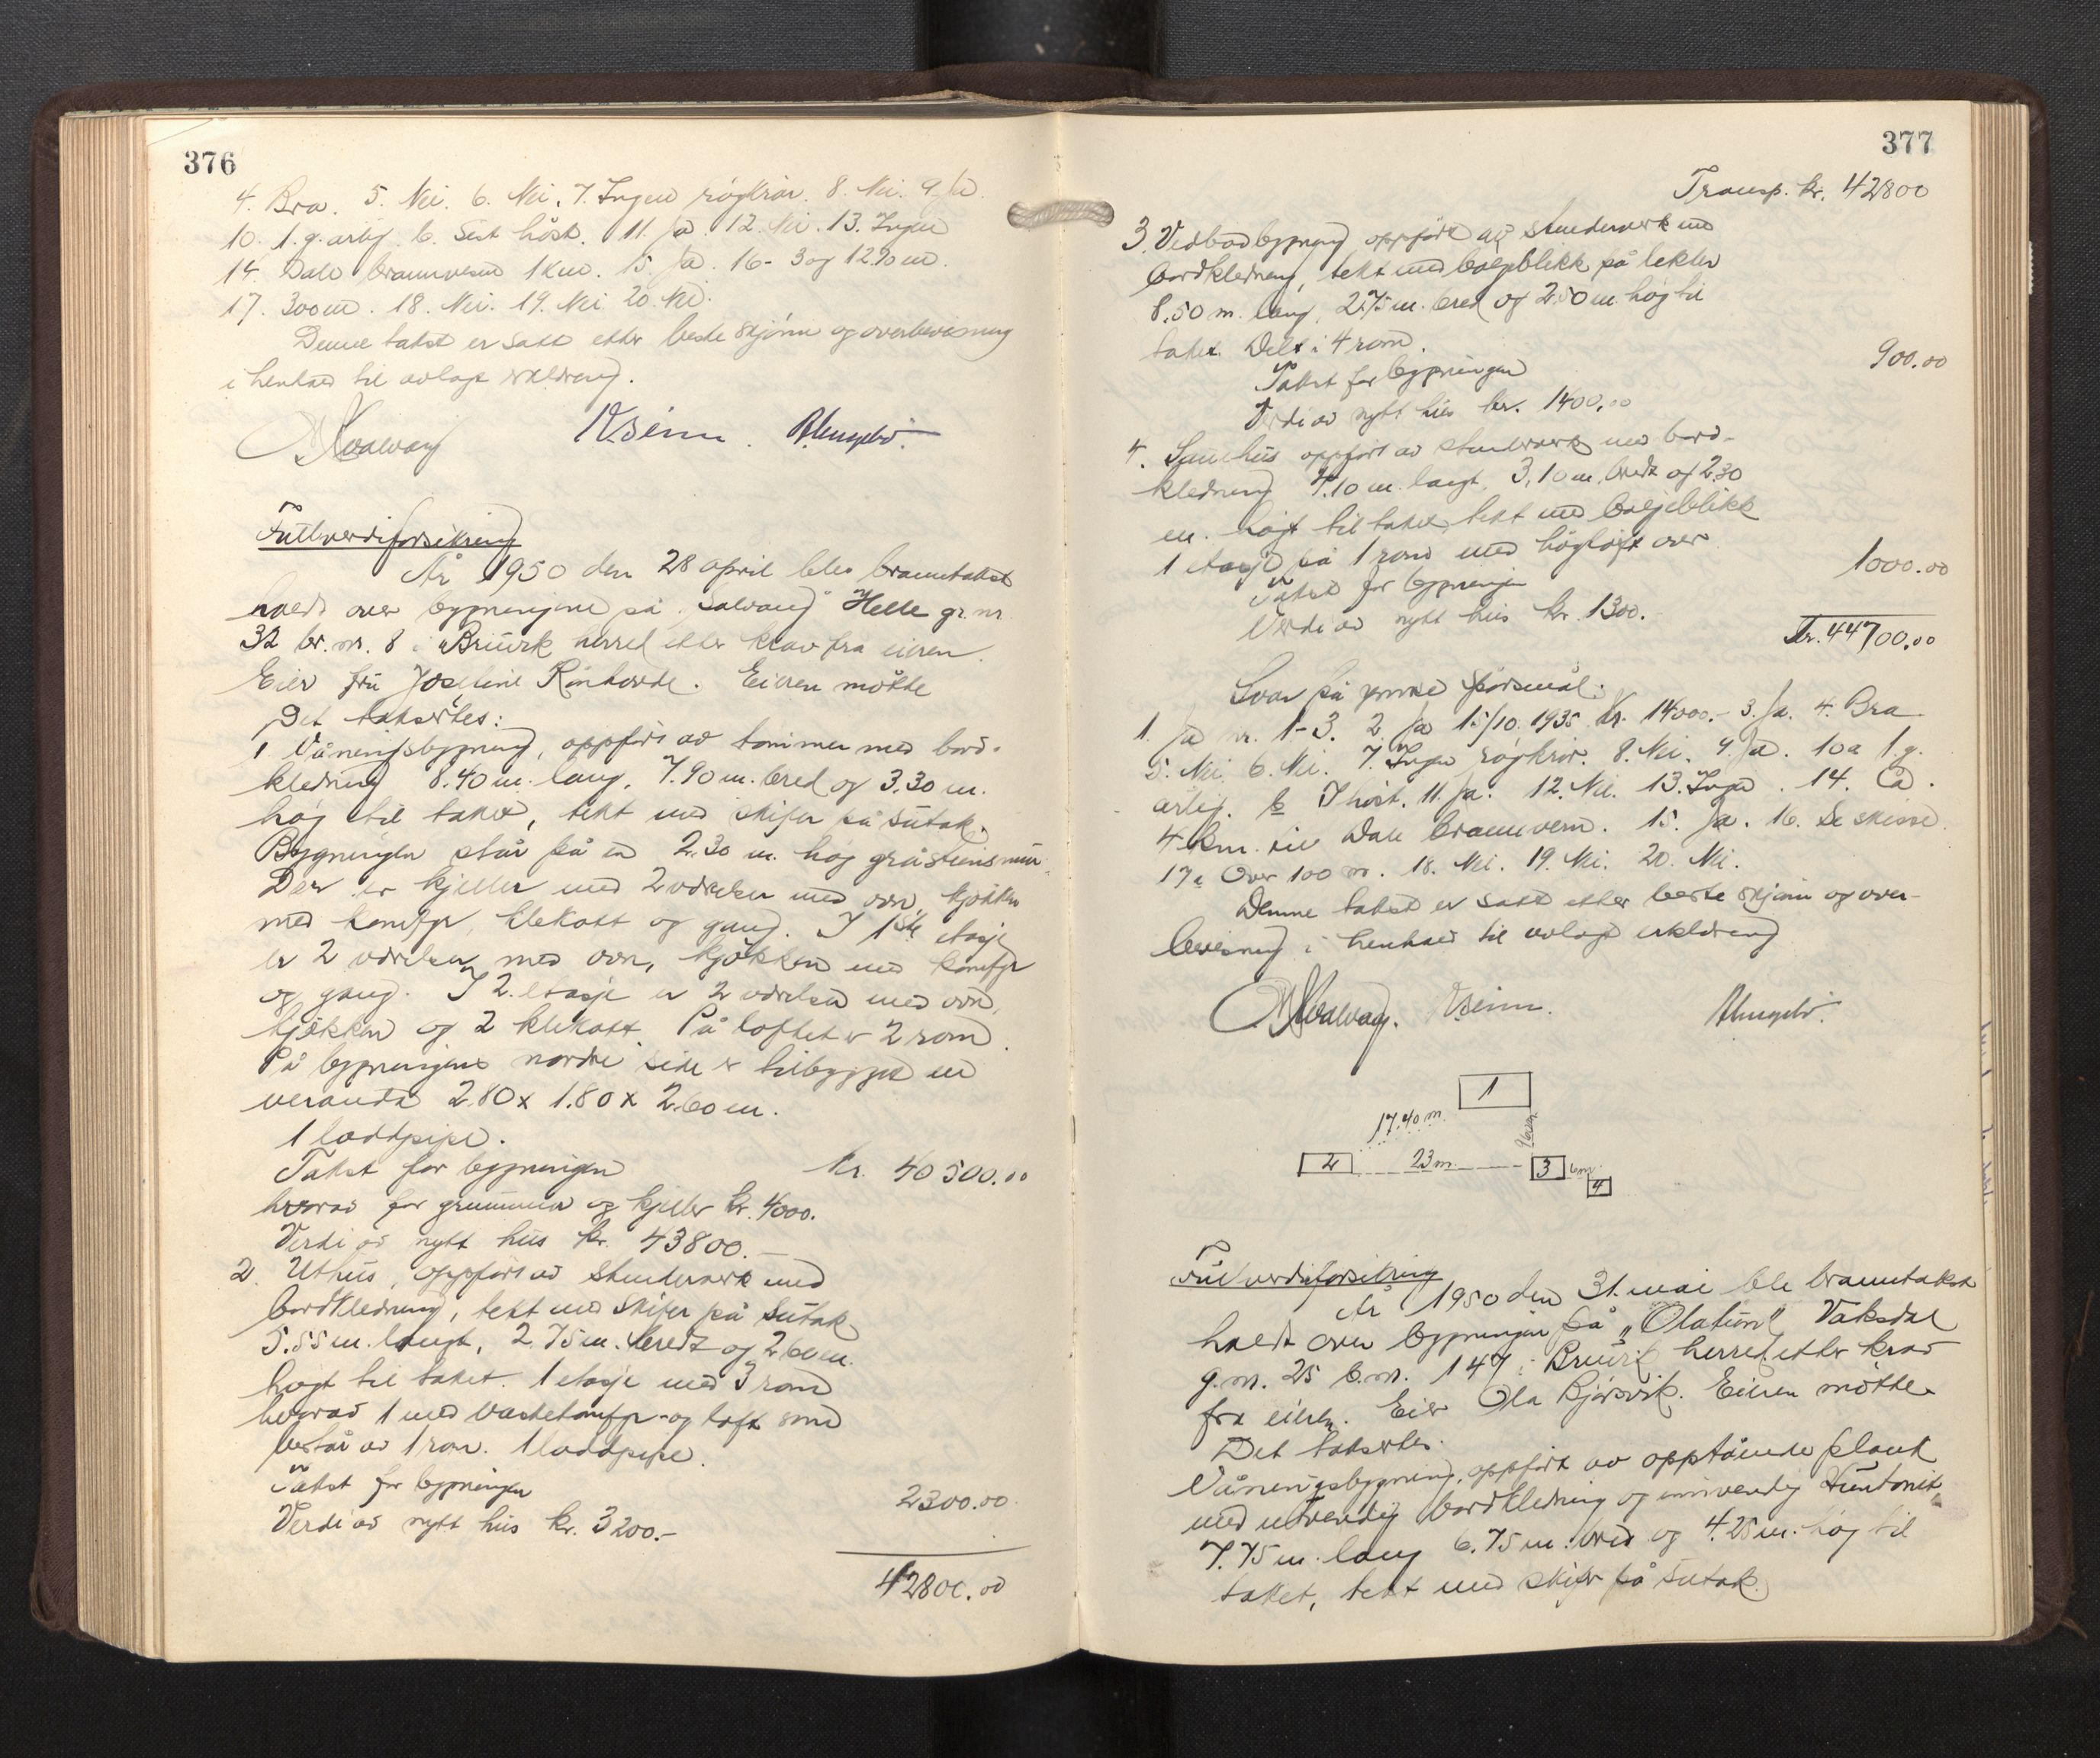 376
4. Bra. 5. Nei. 6. Nei. 7. Ingen rögkrör. 8. Nei. 9. Ja.
10. 1. g. årlig. b. Sist höst. 11. Ja. 12. Nei. 13. Ingen
14. Dale brannvern 1 km. 15. Ja. 16- 3 og 12.70 m.
17. 300 m. 18. Nei. 19. Nei 20. Nei.
Denne takst er satt etter beste skjönn og overbevisning
i henhold til avlagt erklæring.
Fullverdiforsikring
År 1950 den 28 april blev branntakst
holdt over bygningene på "Solvang" Helle gr. nr.
32 br. nr. 8 i Bruvik herred etter krav fra eieren.
Eier fru Josefine Rönhovde. Eieren møtte
Det taksertes:
1 Våningsbygning, oppført av tømmer med bord-
kledning 8.40 m. lang, 7.90 m. bred og 3.30 m.
høg til taket, tekt med skifer på sutak.
Bygningen står på en 2.30 m. høg gråsteinsmur.
Der er kjeller med 2 værelser med ovn, kjøkken
med komfyr, klekott og gang. I 1ste etasje
er 2 værelser med ovn, kjøkken med komfyr
og gang. I 2. etasje er 2 værelser med ovn,
kjøkken og 2 klekott. På loftet er 2 rom.
På bygningens nordre side er tilbygget en
veranda 2.80 x 1.80 x 2.60 m.
1 loddpipe.
Takst for bygningen kr. 40 500.00
hvorav for grunnmur og kjeller kr. 4000.
Verdi av nytt hus kr. 43800.-
2. Uthus, oppført av stenderverk med
bordkledning, tekt med skifer på sutak
5.55 m. langt, 2.75 m. bredt og 2.60 m.
høgt til taket. 1 etasje med 3 rom
hvorav 1 med vaskekomfyr og loft som
består av 1 rom. 1 loddpipe.
Takst for bygningen 2300.00
Verdi av nytt hus kr. 3200.-
42800.00
377
Transp. kr. 42800
3 Vedbodbygning oppført av stenderverk med
bordkledning, tekt med bølgeblikk på lekter
8.50 m. lang, 2.75 m. bred og 2.50 m. høg til
taket. Delt i 4 rom.
Takst for bygningen 900.00
Verdi av nytt hus kr. 1400.00
4. oppført av stenderverk med bord-
kledning 4.10 m. langt, 3.10 m. bredt og 2.30
m. høgt til taket, tekt med bølgeblikk
1 etasje på 1 rom med høyloft over
Takst for bygningen 1000.00
Verdi av nytt hus kr. 1300.
kr. 44700.00
Svar på trykte spørsmål:
1. Ja nr. 1-3. 2. Ja 15/10. 1935 kr. 14000.- 3. Ja. 4. Bra
5. Nei. 6. Nei. 7. Ingen rögkrör. 8. Nei. 9. Ja. 10a 1 g.
årlig. b I høst. 11. Ja. 12. Nei. 13. Ingen. 14. Ca.
4 km. til Dale brannvern. 15. Ja. 16. Se skisse.
17. Over 100 m. 18. Nei. 19. Nei. 20. Nei.
Denne takst er satt etter beste skjønn og over-
bevisning i henhold til avlagt erklæring
1
17.40 m.
2
23 m.
3
6 m.
4
Fullverdiforsikring
År 1950 den 31. mai ble branntakst
holdt over bygningen på "Olatun" Vaksdal
g. nr. 25 b. nr. 147 i Bruvik herred etter krav
fra eieren. Eier Ola Bjørsvik. Eieren møtte
Det taksertes.
Våningsbygning, oppført av oppstående plank
med utvendig bordkledning og innvendig Huntonit
7.75 m. lang 6.75 m. bred og 4.25 m. høg til
taket, tekt med skifer på sutak.